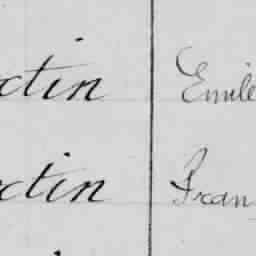 ctin Emile
ctin Fran